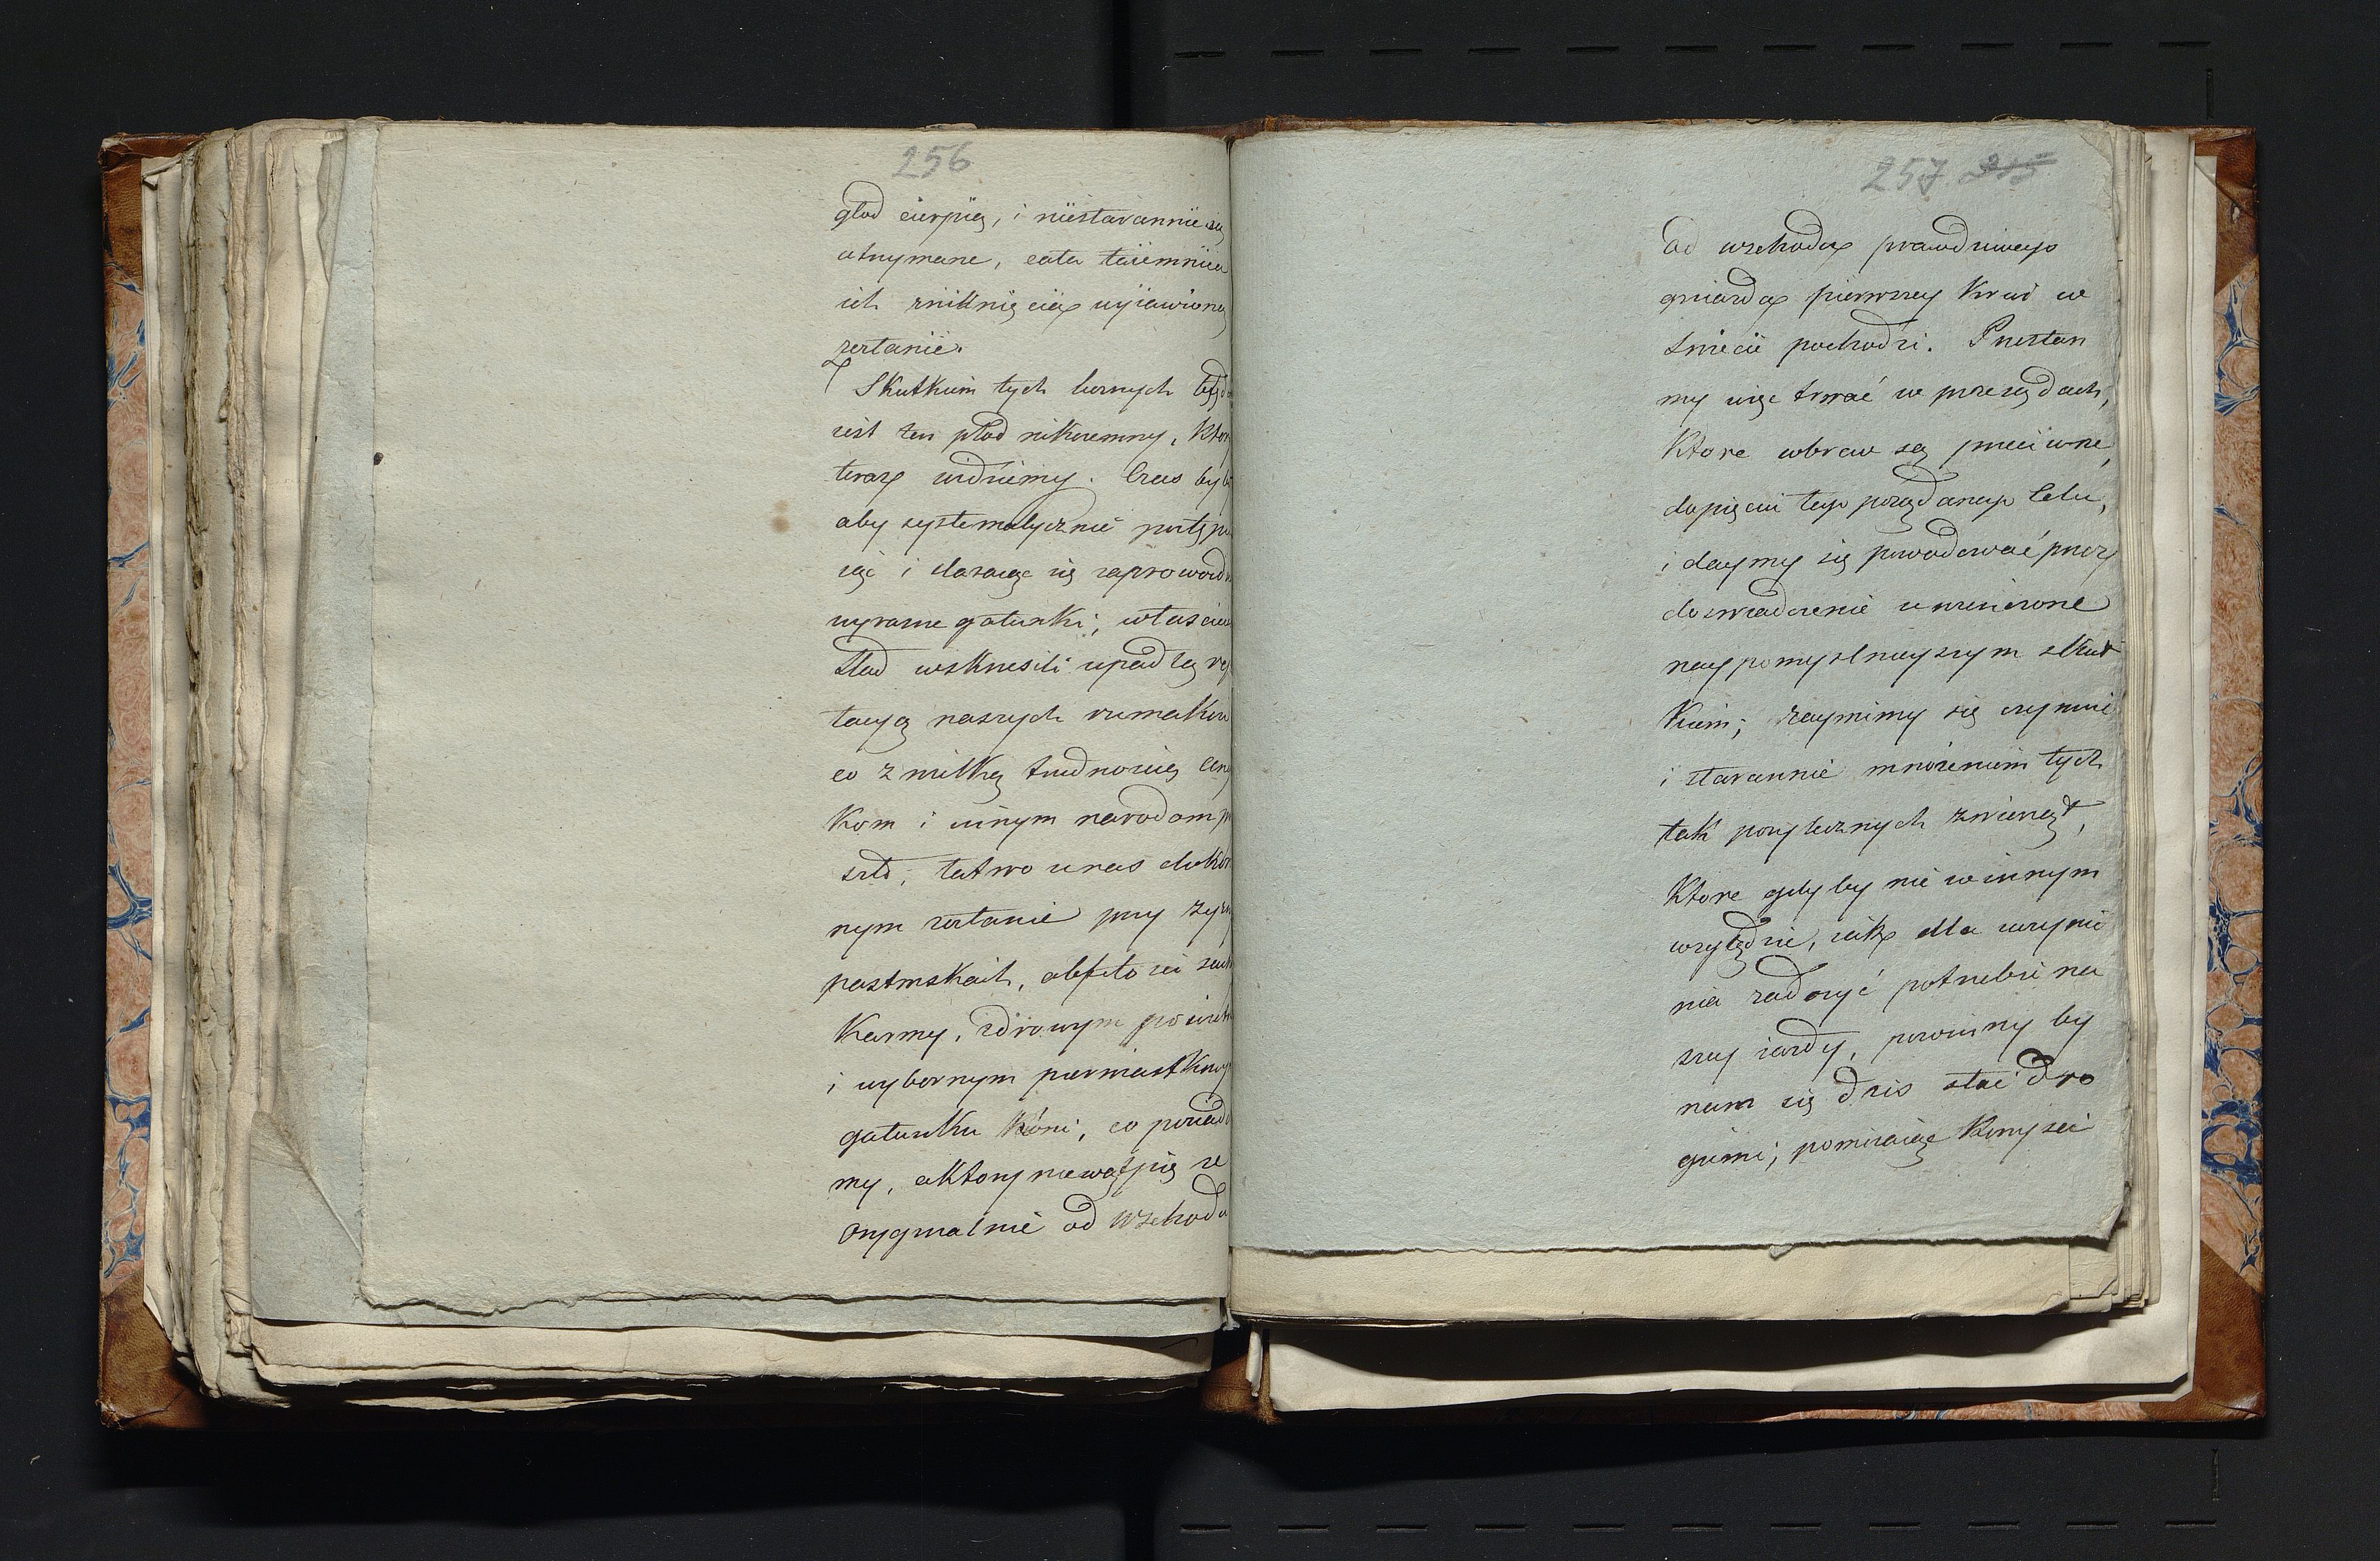 256
głod cierpią, i niestarannie są
utrzymane, cała taiemnica
ich zniknięcia wyiawioną
zostanie.
Skutkiem tych licznych błęd
iest ten płod nikczemny, Ktor
teraz widziemy. Czas był
aby systematycznie postępu
iąc i staraiąc się zaprowadz
wyrazne gatunki, właścicie
Stad wskrzesili upadłą re
tacyą naszych rumakow
co z wielką trudnością Ang
Kom i innym narodom p
szło, łatwo u nas dokon
nym zostanie przy żyzn
pastwiskach, obfitości such
Karmy, zdrowym powietrz
i wybornym pierwiastkowy
gatunku Koni, co posiad
my, a ktory niewątpię ze
oryginalnie od Wschodu
257 215
Od wschodu prawdziwego
gniazda pierwszey Krwi w
Swiecie pochodzi. Przestan
my więc trwać w przesądach,
Ktore wbrew są przeciwne
dopięciu tego pożądanego Celu,
i daymy się powodować przez
doswiadczenie uwienczone
naypomyslnieyszym skut
Kiem; zaymimy się czynnie
i starannie mnożeniem tych
tak pożytecznych zwierząt,
Ktore gdyby nie w innym
względzie, iak dla uczynie
nia zadosyć potrzebie na
szey iazdy, powinny by
nam się dzis stać dro
giemi; pomiiaiąc Korzysci